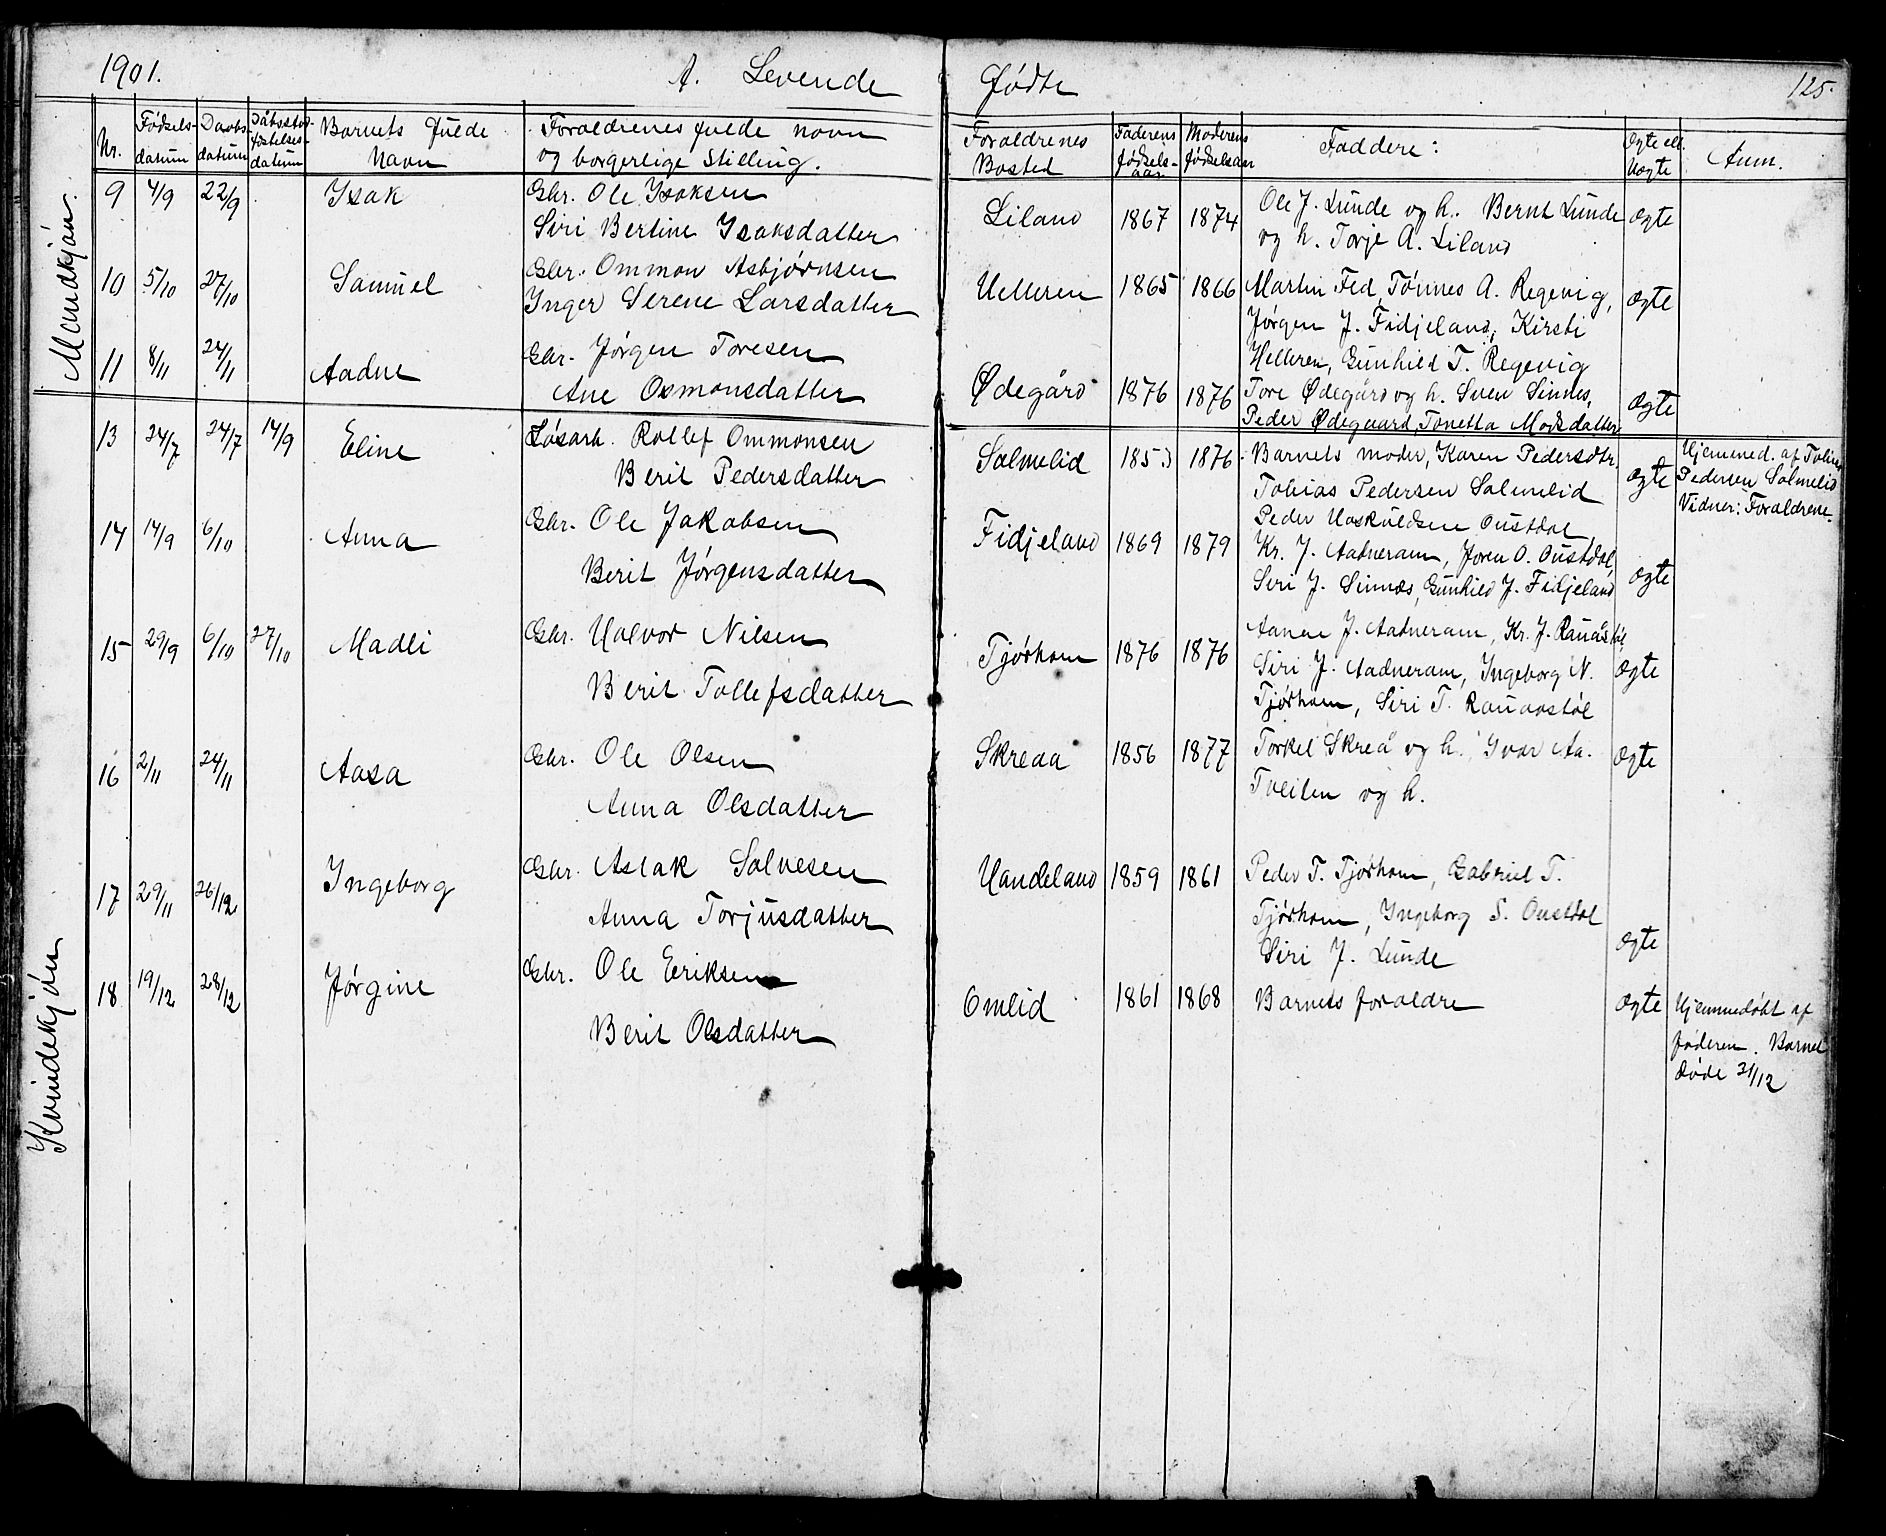 1901. A. Levende Fødte 125.
Nr. Fødsels-datum Daabs-datum Barnets fulde Navn Forældrenes fulde navn og borgerlige Stilling. Forældrenes Bosted Faderens fødsels-aar Moderens fødselsaar Faddere: Ægte ell. Uægte Anm.
Mandkjøn.
9 4/9 22/9 Isak Gbr. Ole Isaksen Liland 1867 1874 Ole J. Lunde og h. Bernt Lunde ægte
Siri Bertine Isaksdatter og h. Torje A. Liland
10 5/10 27/10 Samuel Gbr. Ommon Asbjørnsen Helleren 1865 1866 Martin Fed, Tønnes A. Regevig, ægte
Inger Serene Larsdatter Jørgen J. Fidjeland, Kirsti
Helleren, Gunhild T. Regevig
11 8/11 24/11 Aadne Gbr. Jørgen Toresen Ødegård 1876 1876 Tore Ødegård og h. Sven Sinnes, ægte
Ane Osmonsdatter Peder Ødegaard, Tonetta Madsdatter
Kvindekjøn
13 24/7 24/7 14/9 Eline Løsarb. Rollef Ommonsen Solmelid 1853 1876 Barnets moder, Karen Pedersdtr. ægte Hjemmed. af Tobias
Berit Pedersdatter Tobias Pedersen Solmelid Pedersen Solmelid
Peder Haskuldsen Oustdal, Vidner: Forældrene.
14 14/9 6/10 Anna Gbr. Ole Jakobsen Fidjeland 1869 1879 Kr. J. Aadneram, Joren O. Oustdal, ægte
Berit Jørgensdatter Siri J. Sinnes, Gunhild J. Fidjeland
15 29/9 6/10 27/10 Madli Gbr. Halvor Nilsen Tjørhom 1876 1876 Aanen J. Aadneram, Kr. J. Rauåstøl ægte
Berit Tollefsdatter Siri J. Aadneram, Ingeborg N.
Tjørhom, Siri T. Rauaastøl
16 2/11 24/11 Aasa Gbr. Ole Olsen Skreaa 1856 1877 Torkel Skreå og h. Ivar Aa. ægte
Anna Olsdatter Tveiten og h.
17 29/11 26/12 Ingeborg Gbr. Aslak Salvesen Handeland 1859 1861 Peder T. Tjørhom, Gabriel T.
Anna Torjusdatter Tjørhom, Ingeborg S. Oustdal ægte
Siri J. Lunde
18 19/12 28/12 Jørgine Gbr. Ole Eeriksen Omlid 1861 1868 Barnets forældre ægte Hjemmedøbt af
Berit Olsdatter faderen. Barnet
døde 31/12